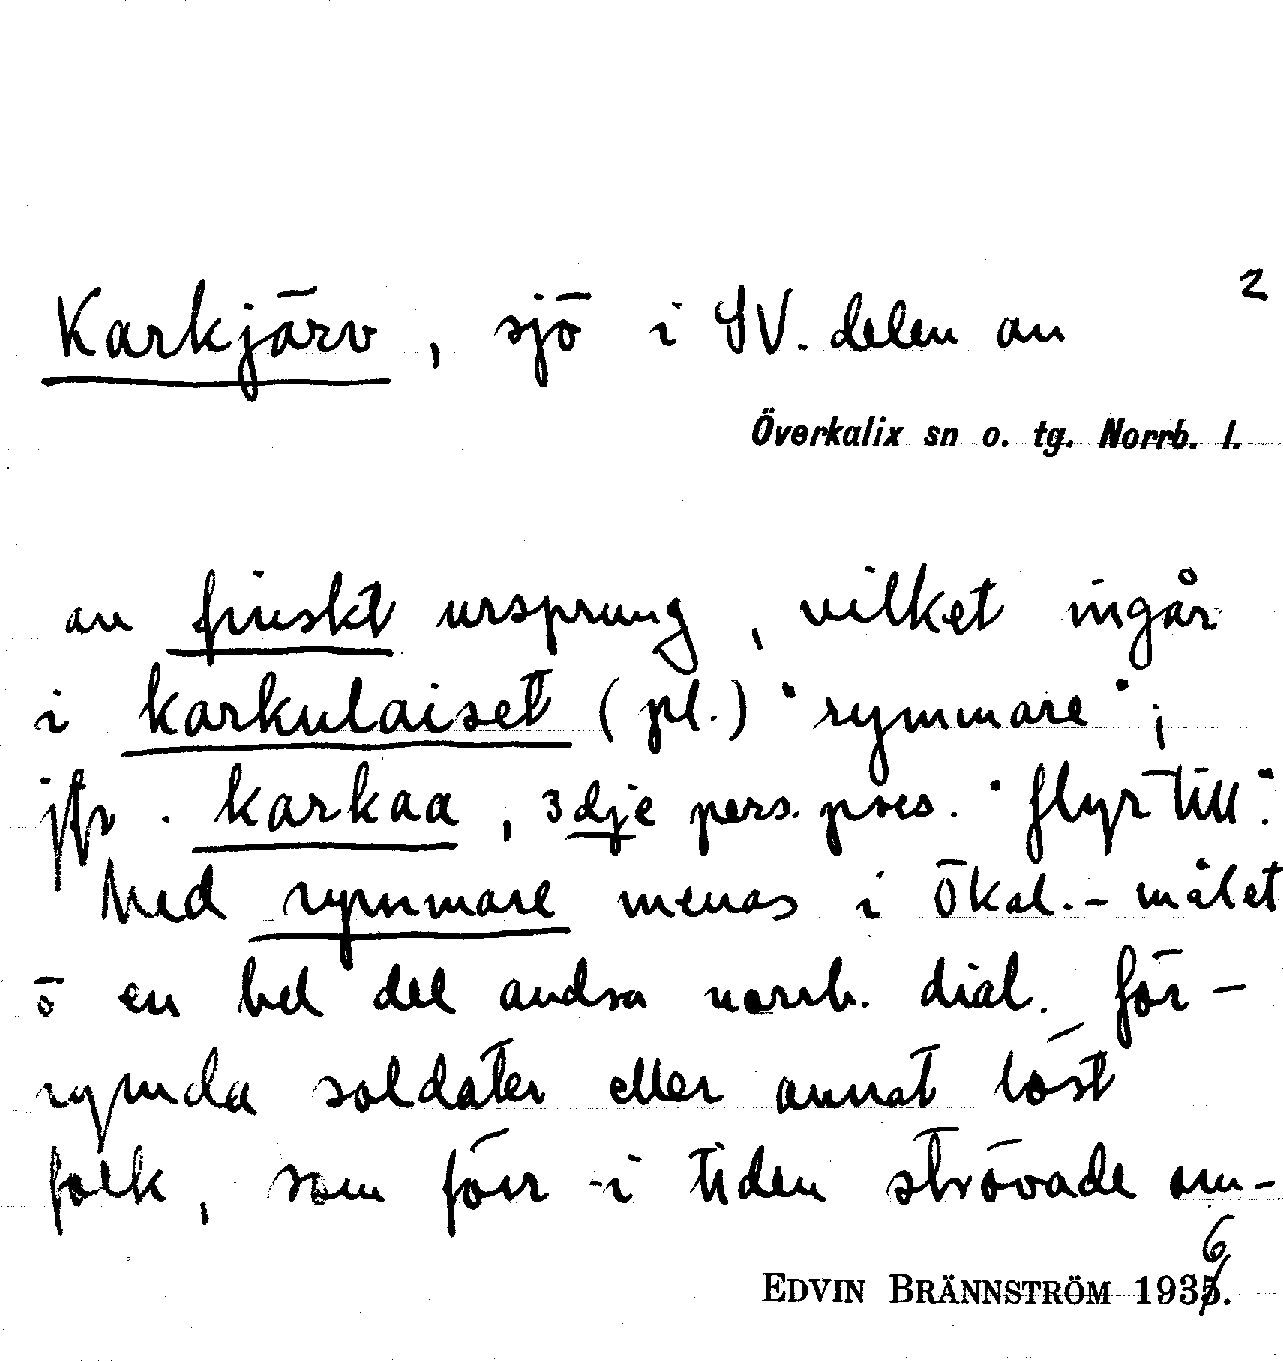 2
Karkjärv, sjö i SV. delen av
Överkalix sn o. tg. Norrb. l.
av finskt ursprung, vilket ingår
i karkulaiset (pl.) "rymmare";
jfr. karkaa, 3dje pers. pres. "flyr till".
Med rymmare menas i Ökal.-målet
o en hel del andra norrb. dial. för-
rymda soldater eller annat löst
folk, som förr i tiden strövade om-
EDVIN BRÄNNSTRÖM 1936.